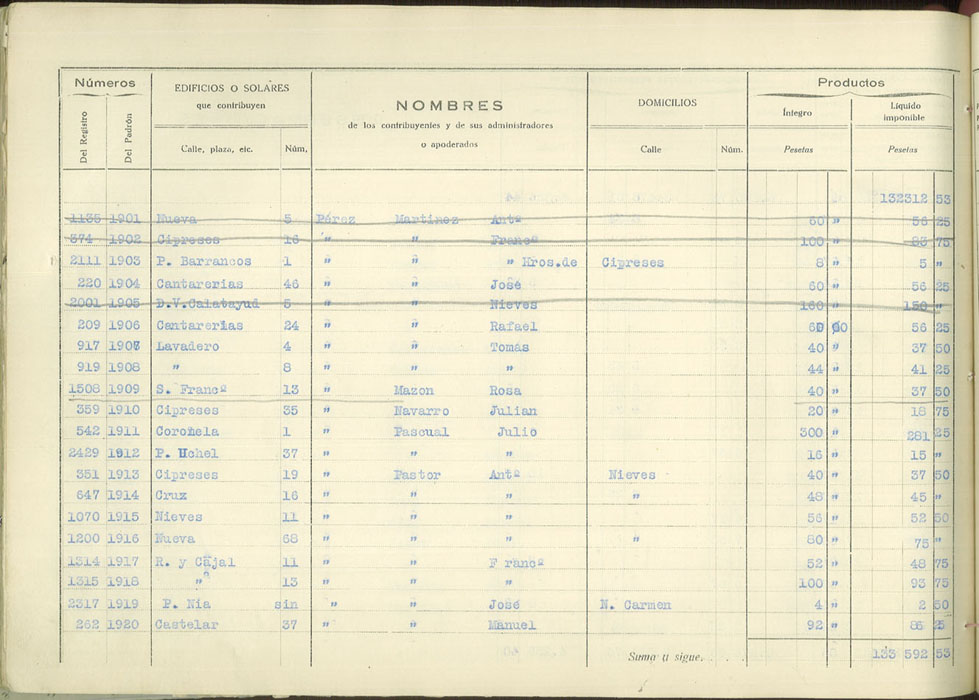 Números EDIFICIOS O SOLARES que contribuyen NOMBRES de los contribuyentes y de sus administradores o apoderados DOMICILIOS Productos
Del Registro Del Padrón Calle, plaza, etc. Núm. Calle Núm. Íntegro Pesetas Líquido imponible Pesetas
132312 53
1135 1901 Nueva 5 Pérez Martinez Antº 60 " 56 25
374 1902 Cipreses 16 " " Francº 100 " 93 75
2111 1903 P. Barrancos 1 " " " Hros.de Cipreses 8 " 5 "
220 1904 Cantarerias 46 " " José 60 " 56 25
2001 1905 D.V.Calatayud 5 " " Nieves 160 " 150 "
209 1906 Cantarerias 24 " " Rafael 60 00 56 25
917 1907 Lavadero 4 " " Tomás 40 " 37 50
919 1908 " 8 " " " 44 " 41 25
1508 1909 S. Francº 13 " Mazon Rosa 40 " 37 50
359 1910 Cipreses 35 " Navarro Julian 20 " 18 75
542 1911 Coroñela 1 " Pascual Julio 300 " 281 25
2429 1912 P. Uchel 37 " " " 16 " 15 "
351 1913 Cipreses 19 " Pastor Antº Nieves 40 " 37 50
647 1914 Cruz 16 " " " " 48 " 45 "
1070 1915 Nieves 11 " " " 56 " 52 50
1200 1916 Nueva 68 " " " " 80 " 75 "
1314 1917 R. y Cajal 11 " " F rancº 52 " 48 75
1315 1918 " 13 " " " 100 " 93 75
2317 1919 P. Nia sin " " José N. Carmen 4 " 2 50
262 1920 Castelar 37 " " Manuel 92 " 86 25
Suma y sigue. 133 592 53